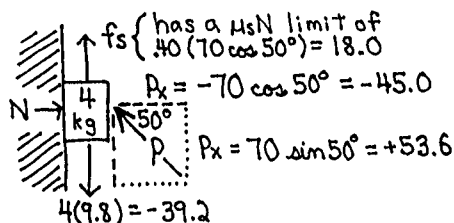 fs { has a μsN limit of
.40 (70 cos 50°) = 18.0
N→ 4 kg
Px = -70 cos 50° = -45.0
50°
P
Px = 70 sin 50° = +53.6
4(9.8) = -39.2